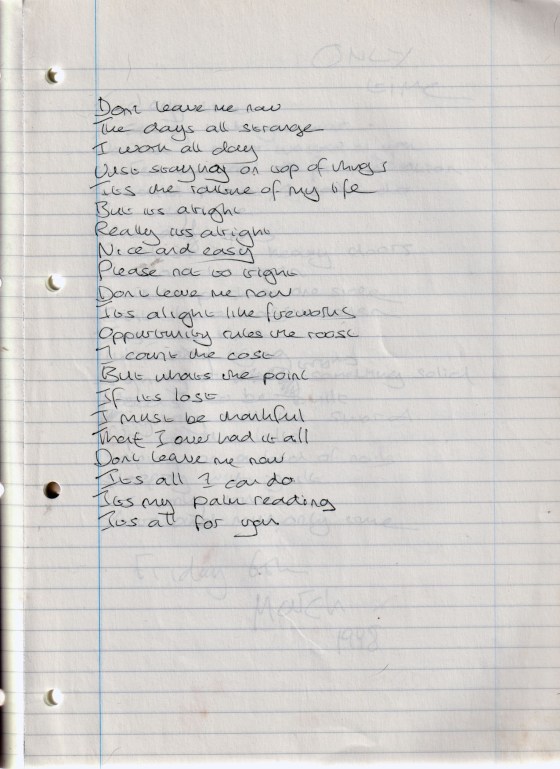 ONLY
TIME
Dont leave me now
The days all strange
I work all day
Just staying on top of things
Its the routine of my life
But its alright
Really its alright
Nice and easy
Please not so tight
Dont leave me now
Its alight like fireworks
Opportunity rules the roost
I count the cost
But whats the point
If its lost
I must be thankful
That I ever had it all
Dont leave me now
Its all I can do
Its my palm reading
Its all for you
Friday 6th
March
1998